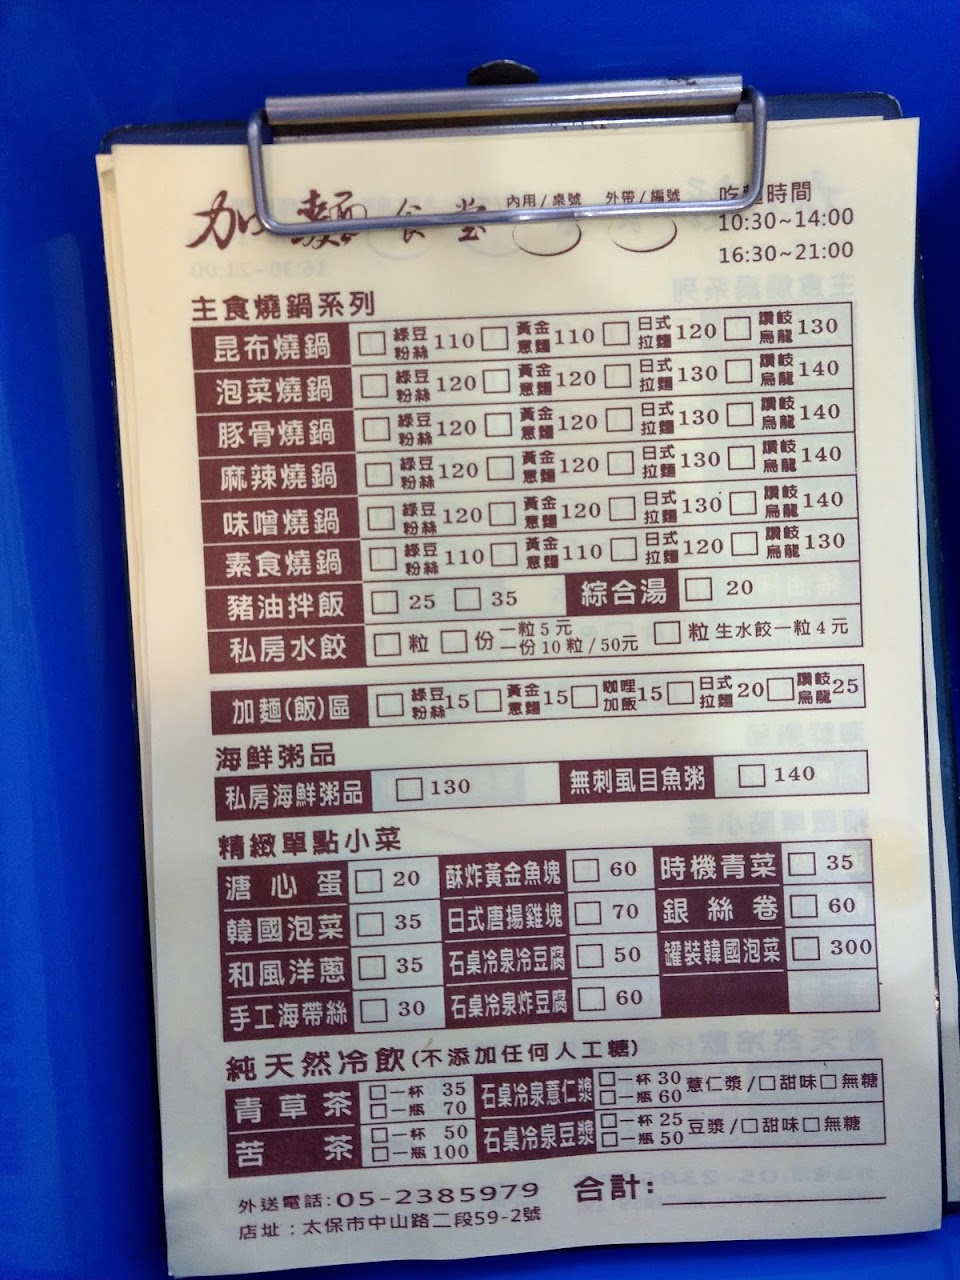 加麵食堂 內用/桌號 外帶/編號 吃麵時間
10:30~14:00
16:30~21:00
主食燒鍋系列
昆布燒鍋 □綠豆粉絲110 □黃金意麵110 □日式拉麵120 □讚岐烏龍130
泡菜燒鍋 □綠豆粉絲120 □黃金意麵120 □日式拉麵130 □讚岐烏龍140
豚骨燒鍋 □綠豆粉絲120 □黃金意麵120 □日式拉麵130 □讚岐烏龍140
麻辣燒鍋 □綠豆粉絲120 □黃金意麵120 □日式拉麵130 □讚岐烏龍140
味噌燒鍋 □綠豆粉絲120 □黃金意麵120 □日式拉麵130 □讚岐烏龍140
素食燒鍋 □綠豆粉絲110 □黃金意麵110 □日式拉麵120 □讚岐烏龍130
豬油拌飯 □25 □35 綜合湯 □20
私房水餃 □粒 □份 一粒5元 一份10粒/50元 □粒 生水餃一粒4元
加麵(飯)區 □綠豆粉絲15 □黃金意麵15 □咖哩加飯15 □日式拉麵20 □讚岐烏龍25
海鮮粥品
私房海鮮粥品 □130 無刺虱目魚粥 □140
精緻單點小菜
溏心蛋 □20 酥炸黃金魚塊 □60 時機青菜 □35
韓國泡菜 □35 日式唐揚雞塊 □70 銀絲卷 □60
和風洋蔥 □35 石桌冷泉冷豆腐 □50 罐裝韓國泡菜 □300
手工海帶絲 □30 石桌冷泉炸豆腐 □60
純天然冷飲(不添加任何人工糖)
青草茶 □一杯 35 □一瓶 70 石桌冷泉薏仁漿 □一杯 30 □一瓶 60 薏仁漿/□甜味□無糖
苦茶 □一杯 50 □一瓶 100 石桌冷泉豆漿 □一杯 25 □一瓶 50 豆漿/□甜味□無糖
外送電話:05-2385979 合計:
店址:太保市中山路二段59-2號